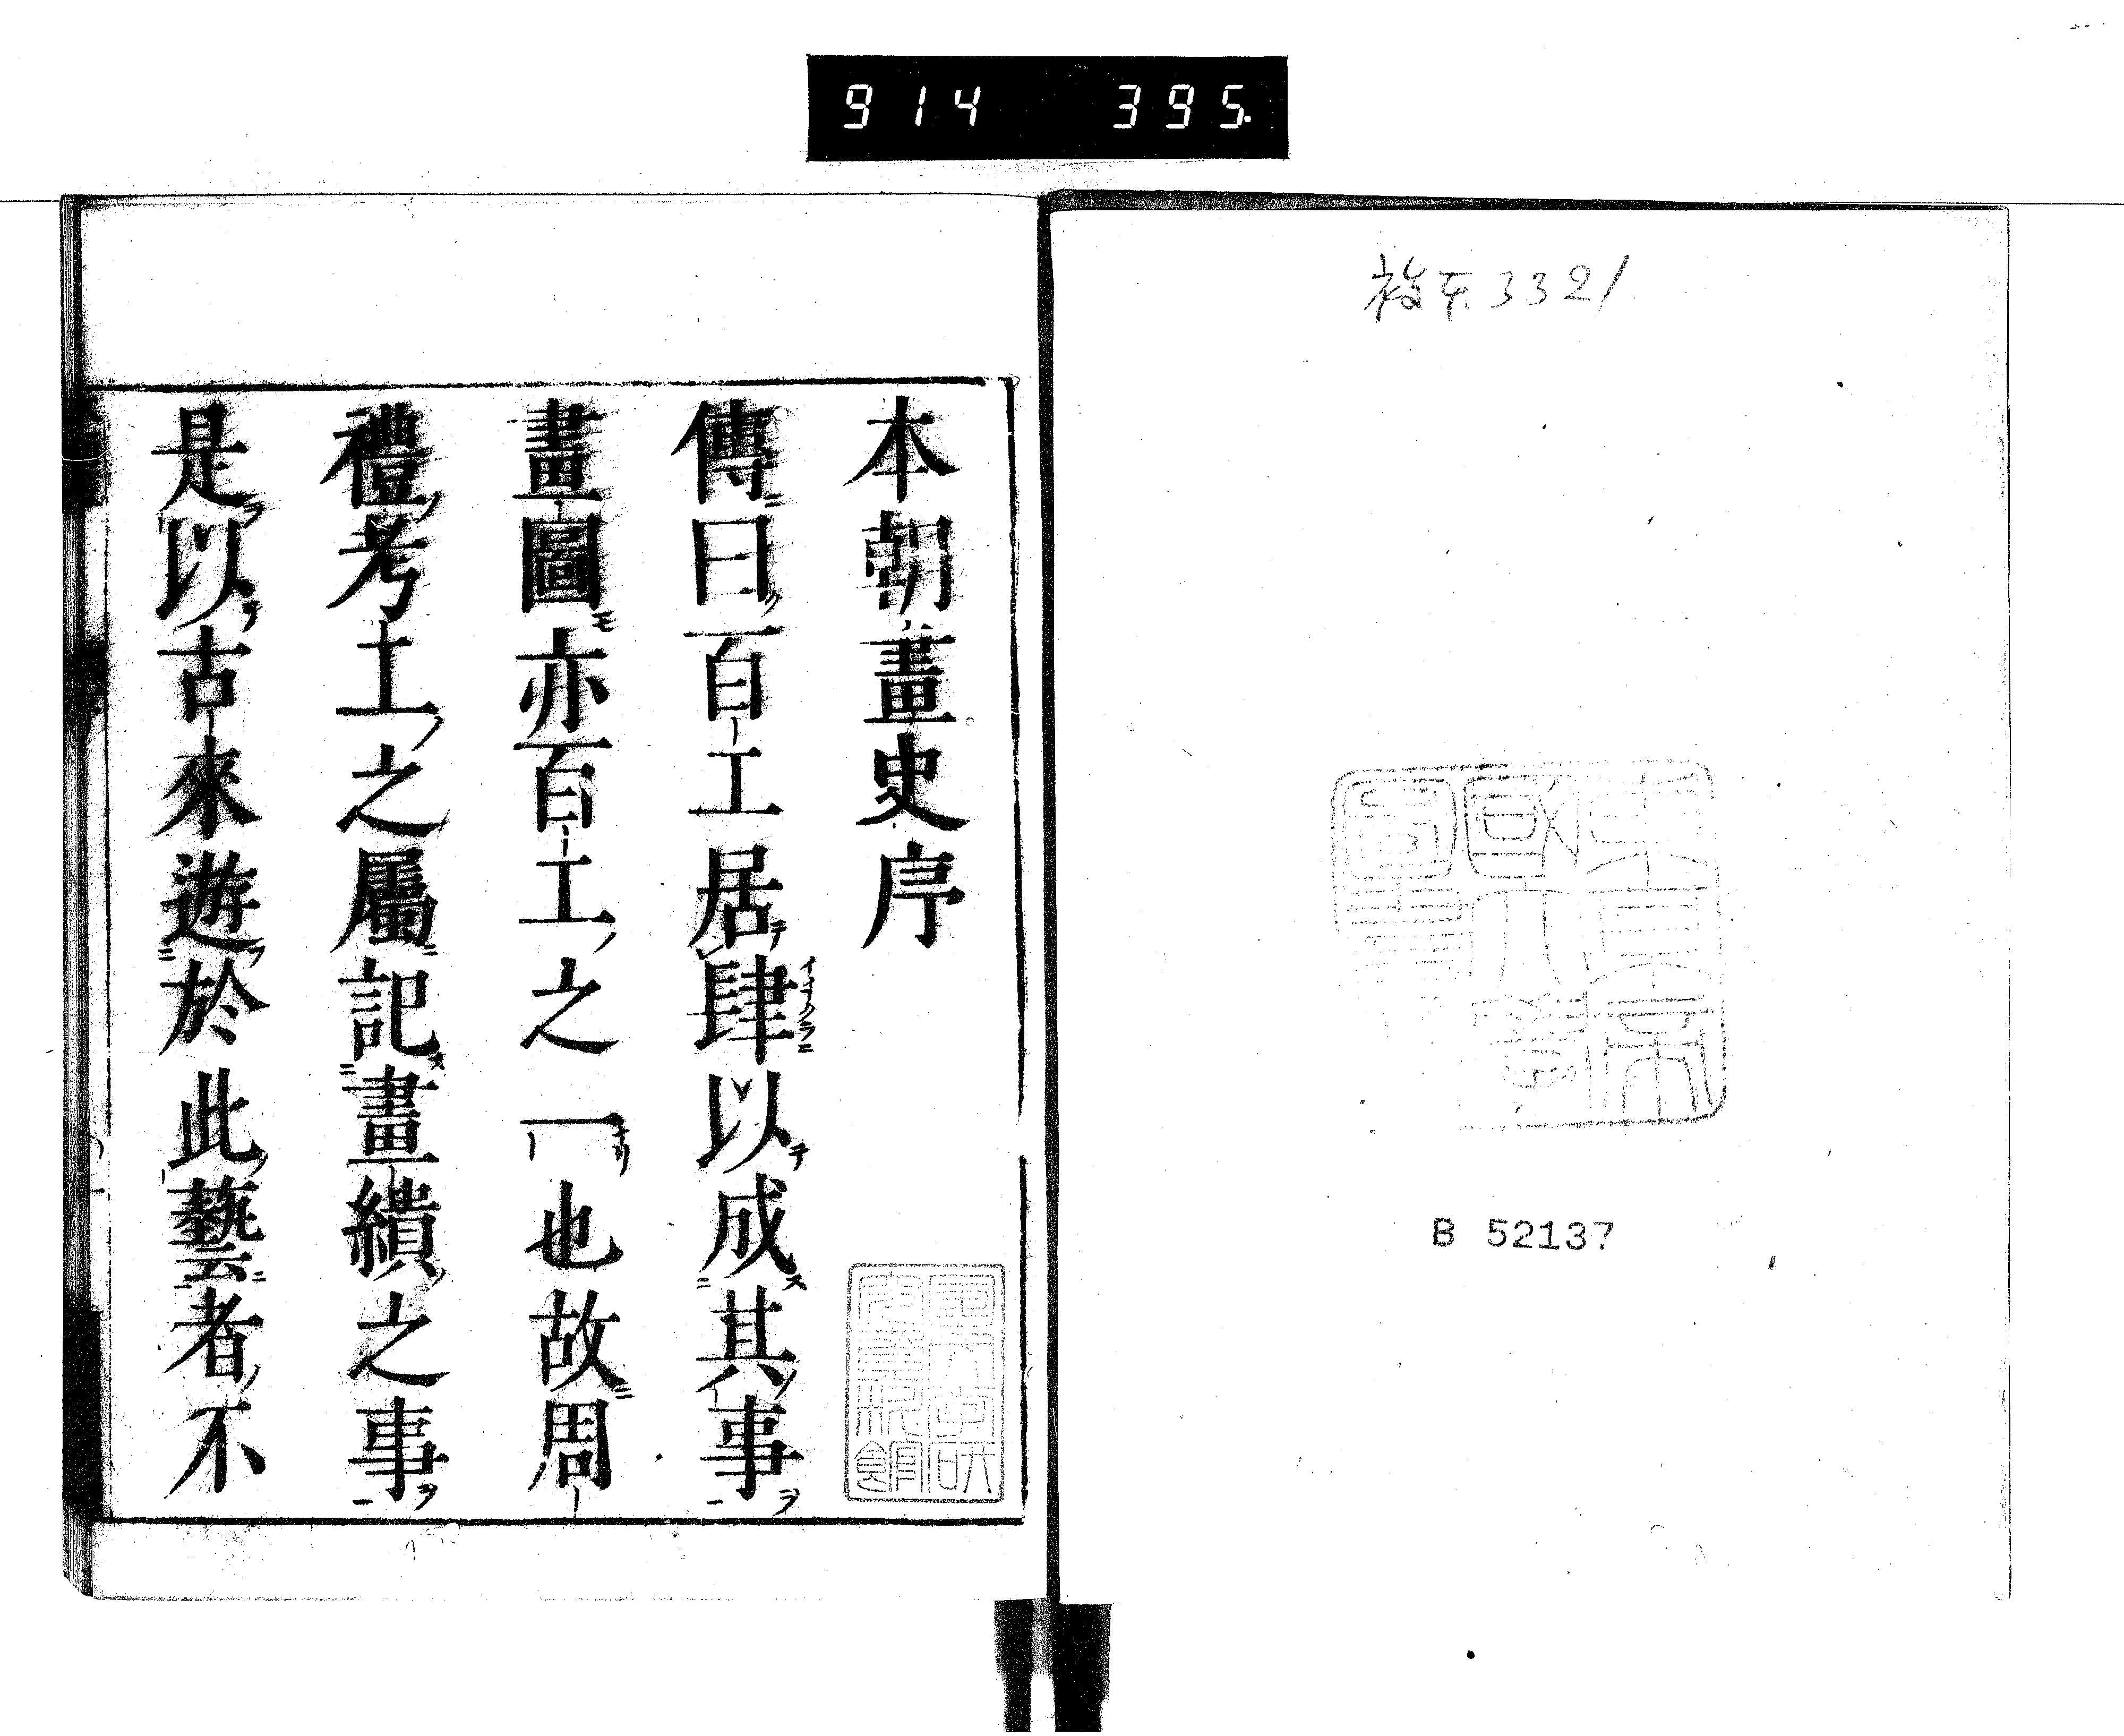 914 395.
3321
B 52137
本朝畫史序
傳曰百工居肆以成其事
畫圖亦百工之一也故周
禮考工之屬記畫繢之事
是以古來遊於此藝者不